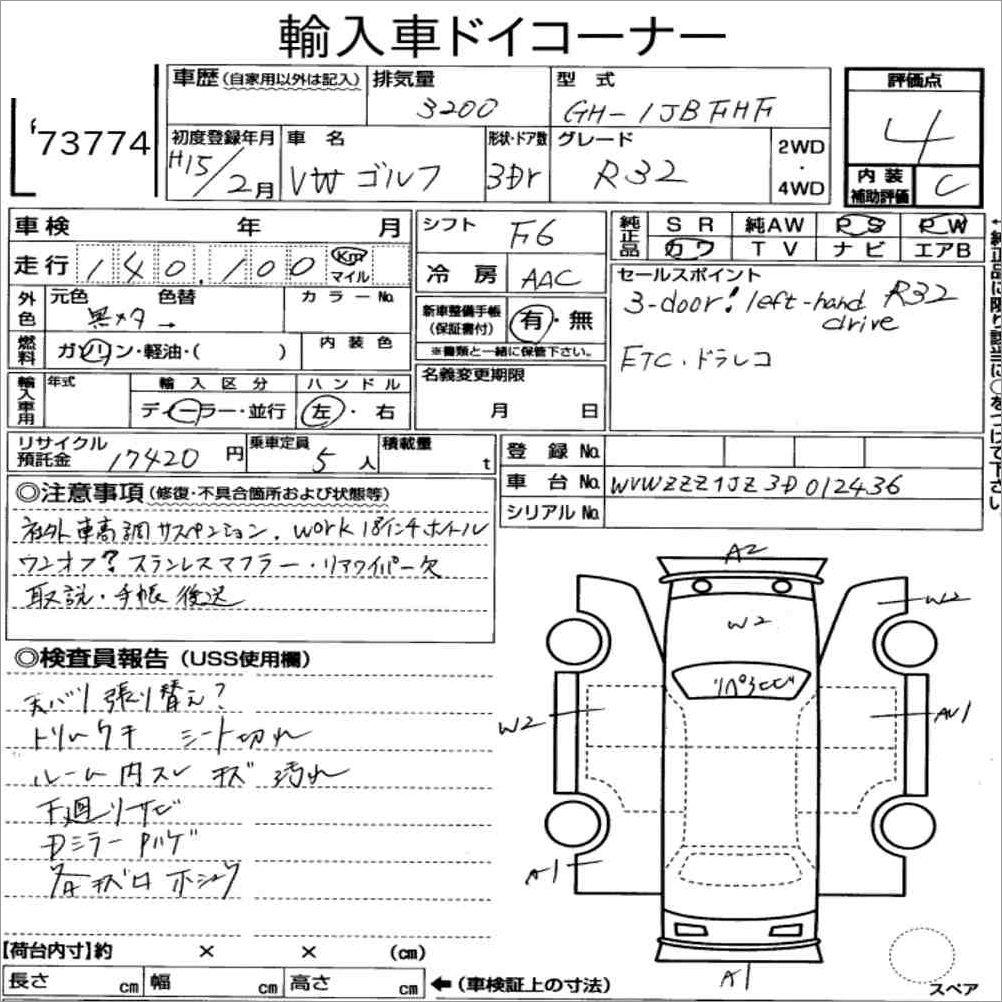 輸入車ドイコーナー
73774
車歴(自家用以外は記入) 排気量 3200 型式 GH-1JBFHF 評価点 4
初度登録年月 H15/2月 車名 VW ゴルフ 形状・ドア数 3Dr グレード R32 2WD・4WD 内装補助評価 C
車検 年 月 シフト F6 純正品 SR 純AW PS PW
カワ TV ナビ エアB
走行 140,100 Km マイル 冷房 AAC
←純正品に限り該当に○をつけて下さい
外色 元色 黒メタ→ 色替 カラーNo. 新車整備手帳(保証書付) 有・無
※書類と一緒に保管下さい。
セールスポイント
3-door! left-hand drive R32
ETC・ドラレコ
燃料 ガソリン・軽油・( ) 内装色 名義変更期限 月 日
輸入車用 年式 輸入区分 ディーラー・並行 ハンドル 左・右
リサイクル預託金 17420円 乗車定員 5人 積載量 t
登録No.
車台No. WVWZZZ1JZ3D012436
シリアルNo.
◎注意事項(修復・不具合箇所および状態等)
社外車高調サスペンション. work 18インチホイル
ワンオフ? ステンレスマフラー・リアワイパー欠
取説・手帳後送
◎検査員報告(USS使用欄)
天バリ張り替え?
トリムウキ シート切れ
ルーム内スレ キズ 汚れ
下廻りサビ
Dミラー Pハゲ
各キズ口ホシュウ
A2
W2
W2
リペアヒビ
W2
AW1
A1
A1
スペア
【荷台内寸】約 × × (cm)
長さ cm 幅 cm 高さ cm ←(車検証上の寸法)